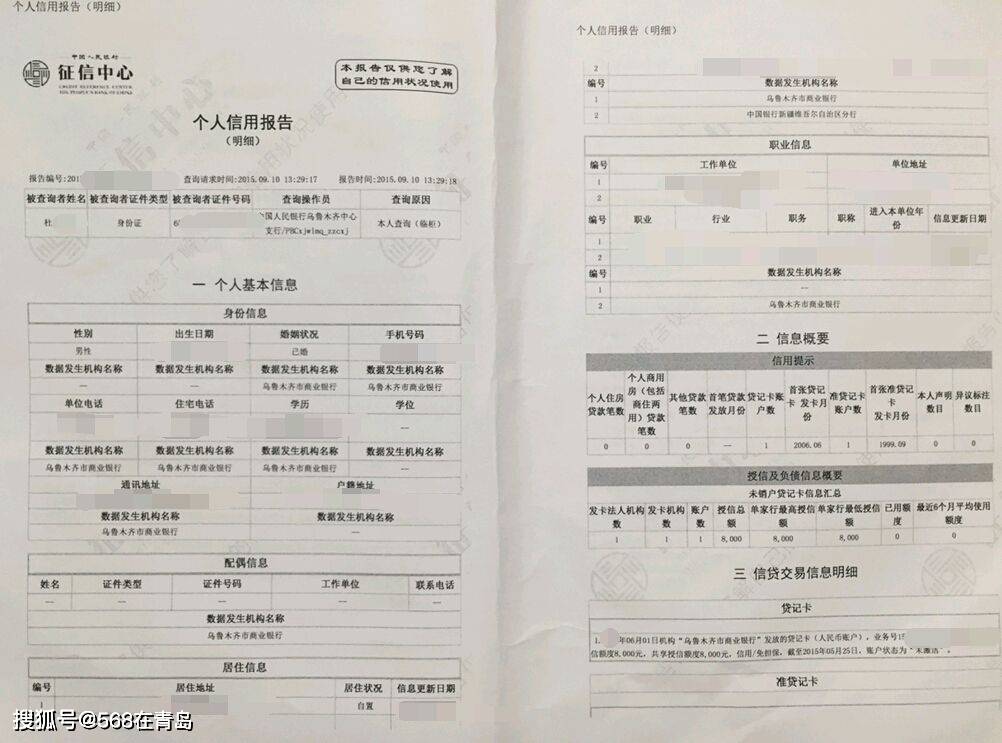 个人信用报告（明细）
中国人民银行
征信中心
CREDIT REFERENCE CENTER
THE PEOPLE'S BANK OF CHINA
本报告仅供您了解
自己的信用状况使用
个人信用报告
（明细）
报告编号:201 查询请求时间:2015.09.10 13:29:17 报告时间:2015.09.10 13:29:18
被查询者姓名 被查询者证件类型 被查询者证件号码 查询操作员 查询原因
杜 身份证 中国人民银行乌鲁木齐中心 本人查询（临柜）
支行/PBCxjwlmq_zzcxj
一 个人基本信息
身份信息
性别 出生日期 婚姻状况 手机号码
男性 已婚
数据发生机构名称 数据发生机构名称 数据发生机构名称 数据发生机构名称
— — 乌鲁木齐市商业银行 乌鲁木齐市商业银行
单位电话 住宅电话 学历 学位
—
数据发生机构名称 数据发生机构名称 数据发生机构名称 数据发生机构名称
乌鲁木齐市商业银行 乌鲁木齐市商业银行 乌鲁木齐市商业银行 —
通讯地址 户籍地址
数据发生机构名称 数据发生机构名称
乌鲁木齐市商业银行 —
配偶信息
姓名 证件类型 证件号码 工作单位 联系电话
— — — — —
数据发生机构名称
乌鲁木齐市商业银行
居住信息
编号 居住地址 居住状况 信息更新日期
1 自置
搜狐号@568在青岛
个人信用报告（明细）
2
编号 数据发生机构名称
1 乌鲁木齐市商业银行
2 中国银行新疆维吾尔自治区分行
职业信息
编号 工作单位 单位地址
1
2
编号 职业 行业 职务 职称 进入本单位年份 信息更新日期
1
2
编号 数据发生机构名称
1 —
2 乌鲁木齐市商业银行
二 信息概要
信用提示
个人住房贷款笔数 个人商用房（包括商住两用）贷款笔数 其他贷款笔数 首笔贷款发放月份 贷记卡账户数 首张贷记卡 发卡月份 准贷记卡账户数 首张准贷记卡 发卡月份 本人声明数目 异议标注数目
0 0 0 — 1 2006.06 1 1999.09 0 0
授信及负债信息概要
未销户贷记卡信息汇总
发卡法人机构数 发卡机构数 账户数 授信总额 单家行最高授信额 单家行最低授信额 已用额度 最近6个月平均使用额度
1 1 1 8,000 8,000 8,000 0 0
三 信贷交易信息明细
贷记卡
1. 年06月01日机构“乌鲁木齐市商业银行”发放的贷记卡（人民币账户），业务号
信额度8,000元，共享授信额度8,000元，信用/免担保，截至2015年05月25日，账户状态为“未激活”。
准贷记卡